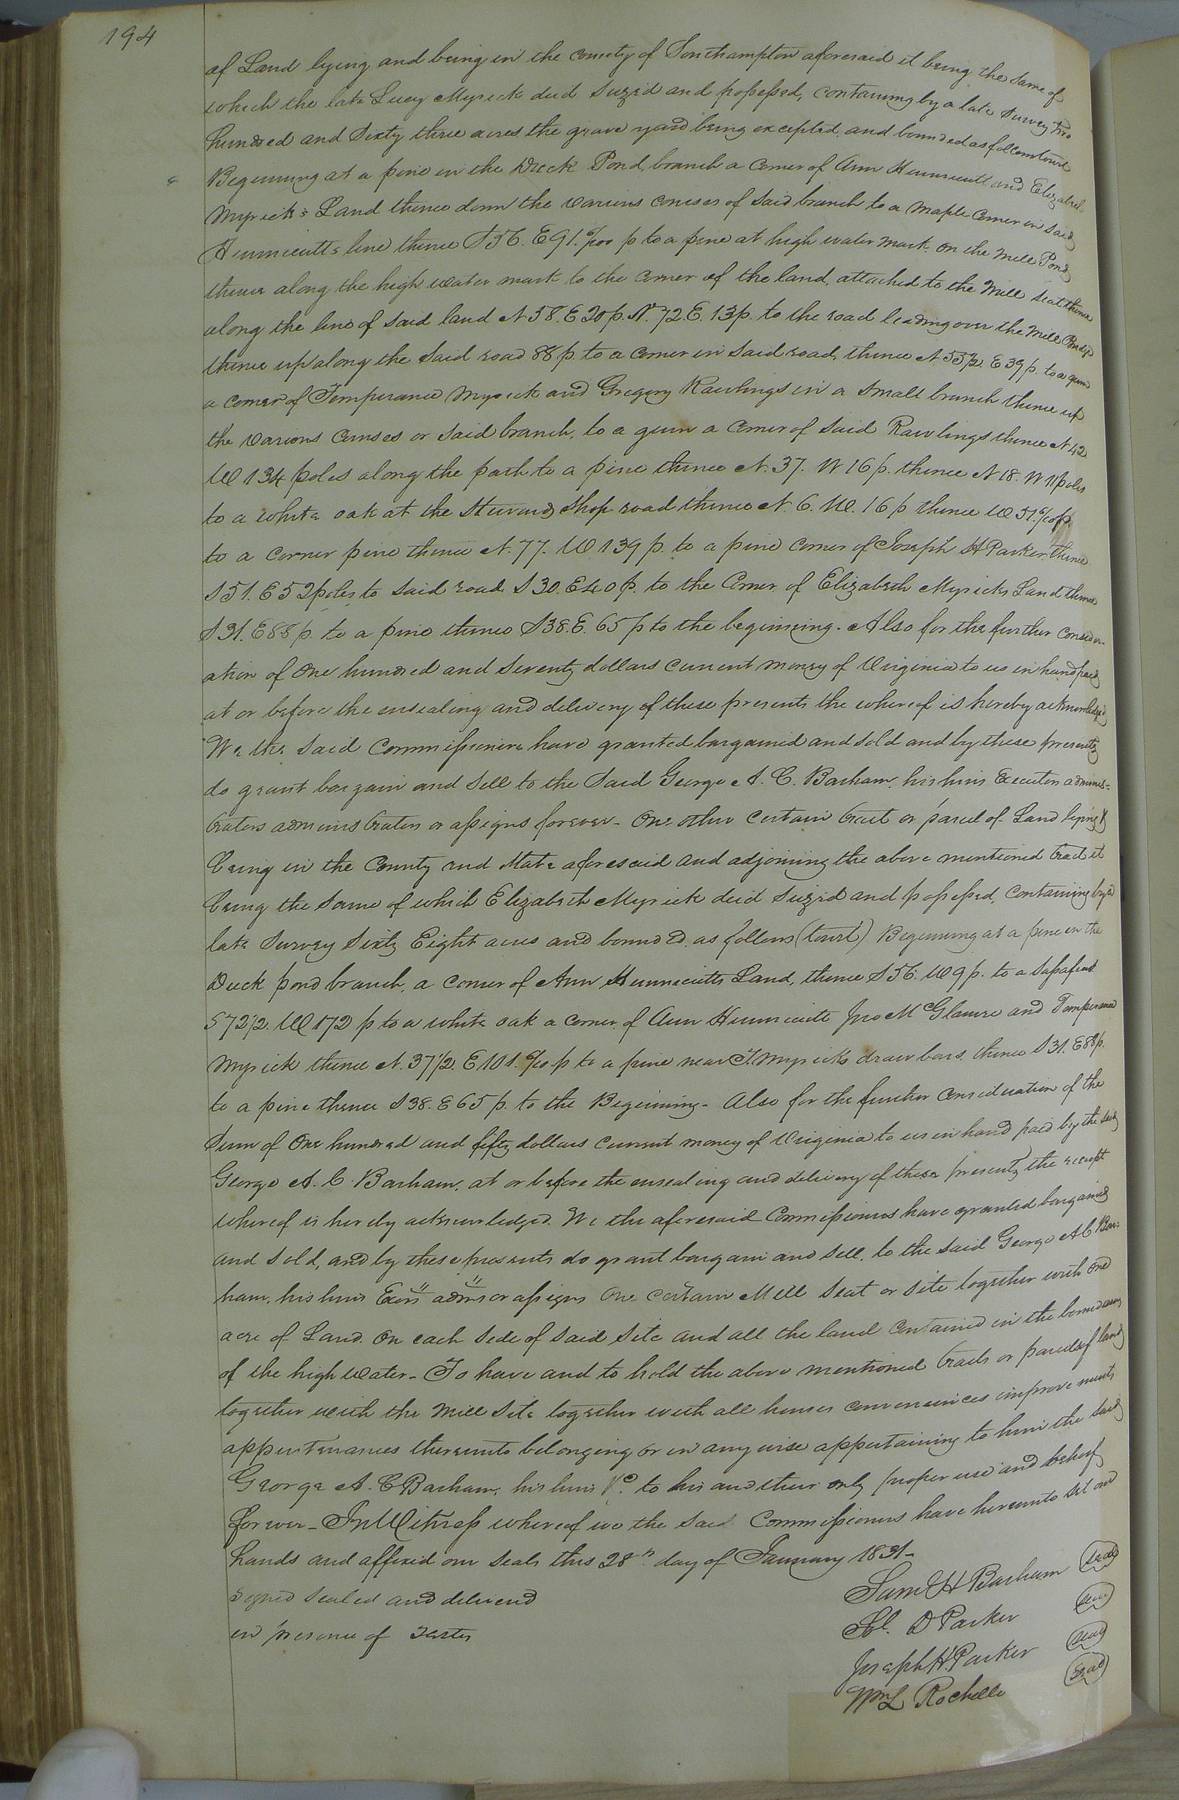 194
of Land lying and being in the county of Southampton aforesaid it being the same of
which the late Lucy Myrick died Siezd and possessed, containing by a late survey two
hundred and Sixty three acres the grave yard being excepted and bounded as follows towit
Beginning at a pine in the Duck Pond branch a Corner of Ann Hunnicutt and Elizabeth
Myrick's Land thence down the various courses of said branch to a maple Corner in said
Hunnicutts line thence S 56. E 91. p to a pine at high water mark on the Mill Pond
thence along the high water mark to the corner of the land attached to the Mill seat thence
along the line of said land N 58. E 20 p. N. 72 E. 13 p. to the road leading over the Mill
thence up along the said road 88 p to a corner in said road, thence N 55½ E 39 p. to a gum
a corner of Temperance Myrick and Gregory Rawlings in a small branch thence up
the various Courses or said branch, to a gum a Corner of said Rawlings thence N 42
W 134 poles along the path to a pine thence N. 37. W 16 p. thence N 18. W 11 poles
to a white oak at the Shop road thence N. 6. W. 16 p thence W 51.
to a corner pine thence N. 77. W 139 p. to a pine corner of Joseph H Parker thence
S 51. E 52 poles to said road S 30. E 40 p. to the Corner of Elizabeth Myricks Land thence
S 31. E 88 p. to a pine thence S 38. E. 65 p to the beginning. Also for the further consider-
ation of One hundred and seventy dollars current money of Virginia to us in hand paid
at or before the ensealing and delivery of these presents the whereof is hereby acknowledged
We the said Commissioners have granted bargained and sold and by these presents
do grant bargain and sell to the said George A. C. Barham, his heirs Executors adminis-
trators administrators or assigns forever - One other certain tract or parcel of Land lying &
being in the County and State aforesaid and adjoining the above mentioned tract it
being the same of which Elizabeth Myrick died siezd and possessed, containing by a
late survey Sixty Eight acres and bounded as follows (towit) Beginning at a pine in the
Duck pond branch, a corner of Ann Hunnicutts Land, thence S 56. W 9 p. to a sassafras
S 72½. W 172 p to a white oak a corner of Ann Hunnicutt Jno McGlamre and Temperance
Myrick thence N. 37½. E 101. p to a pine near T. Myricks draw bars, thence S 31. E 88 p.
to a pine thence S 38. E 65 p. to the Beginning - Also for the further consideration of the
sum of One hundred and fifty dollars current money of Virginia to us in hand paid by the said
George A. C. Barham, at or before the ensealing and delivery of these presents the receipt
whereof is hereby acknowledged. We the aforesaid Commissioners have granted bargained
and sold, and by these presents do grant bargain and sell, to the said George A C Bar-
ham, his heirs Exors admrs or assigns One certain Mill Seat or site together with one
acre of Land on each side of said site and all the land contained in the boundary
of the high water - To have and to hold the above mentioned tracts or parcels of land
together with the Mill Site together with all houses conveniences improvements
appurtenances thereunto belonging or in any wise appertaining to him the said
George A. C Barham, his heirs &c. to his and their only proper use and behoof
forever - In Witness whereof we the said Commissioners have hereunto set our
hands and affixed our seals this 28th day of January 1831 -
Signed sealed and delivered
in presence of Testes
Saml H Barham (seal)
Sl. D Parker (seal)
Joseph H Parker (seal)
Wm L Rochelle (seal)